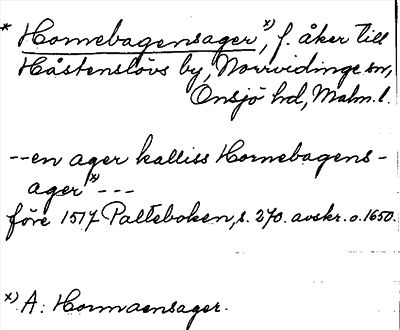 * Hornebagensager x), f. åker till
Håstenslövs by, Norrvidinge sn,
Onsjö hd, Malm. l.
--en ager kalliss Hornebagens-
ager x) ---
före 1517 Palteboken, s. 270. avskr. o. 1650.
x) A: Hormaensager.